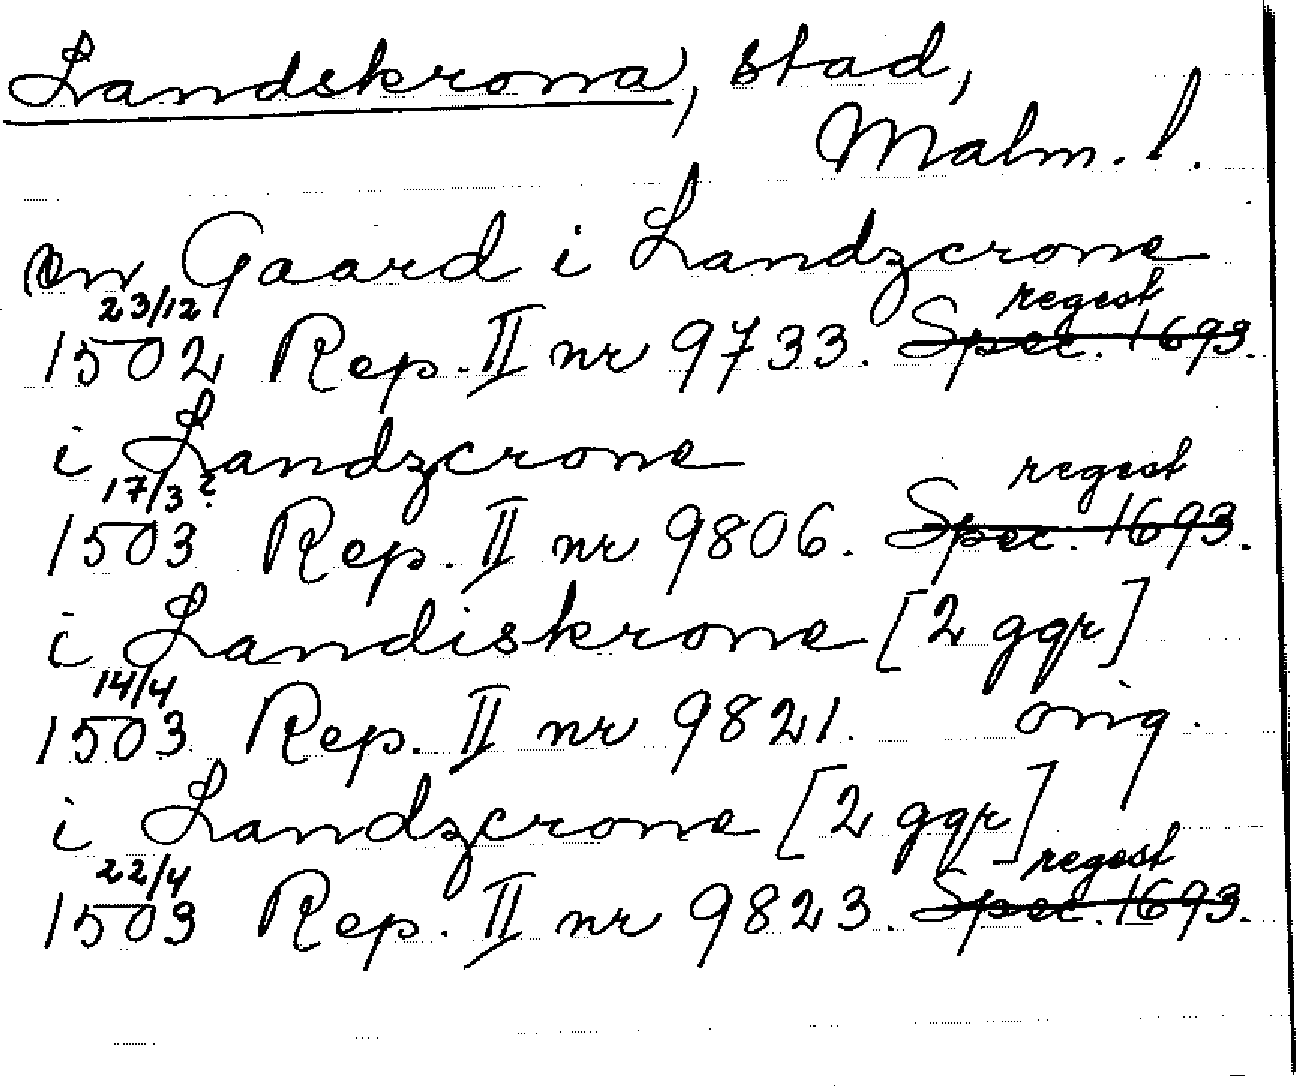 Landskrona, stad,
Malm. l.
en Gaard i Landzcrone
23/12 regest
1502 Rep. II nr 9733. Spec. 1693.
i Landzcrone
17/3? regest
1503 Rep. II nr 9806. Spec. 1693.
i Landiskrone [2 ggr]
14/4
1503 Rep. II nr 9821. orig.
i Landzcrone [2 ggr]
22/4 regest
1503 Rep. II nr 9823. Spec. 1693.